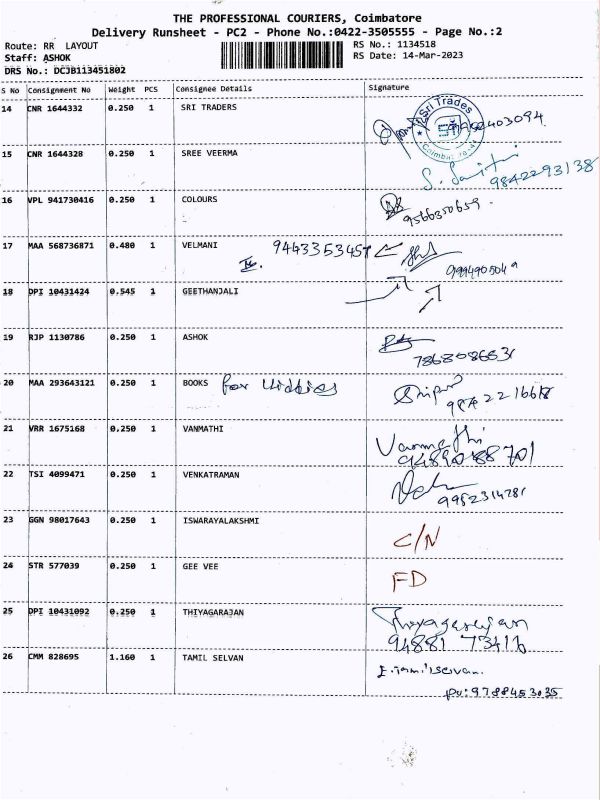 THE PROFESSIONAL COURIERS, Coimbatore
Delivery Runsheet - PC2 - Phone No.:0422-3505555 - Page No.:2
Route: RR LAYOUT RS No.: 1134518
Staff: ASHOK RS Date: 14-Mar-2023
DRS No.: DCJB113451802
S No Consignment No Weight PCS Consignee Details Signature
14 CNR 1644332 0.250 1 SRI TRADERS
Sri Trades
STi
Coimbatore
15 CNR 1644328 0.250 1 SREE VEERMA
9842293138
16 VPL 941730416 0.250 1 COLOURS
9566350659
17 MAA 568736871 0.480 1 VELMANI 9443353457
18 DPI 10431424 0.545 1 GEETHANJALI
19 RJP 1130786 0.250 1 ASHOK
20 MAA 293643121 0.250 1 BOOKS for kiddies
21 VRR 1675168 0.250 1 VANMATHI Vanmathi
22 TSI 4099471 0.250 1 VENKATRAMAN
9952314781
23 GGN 98017643 0.250 1 ISWARAYALAKSHMI C/N
24 STR 577039 0.250 1 GEE VEE FD
25 DPI 10431092 0.250 1 THIYAGARAJAN Thiyagarajan
94881 73416
26 CMM 828695 1.160 1 TAMIL SELVAN E.Tamilselvan.
PH: 9788453035